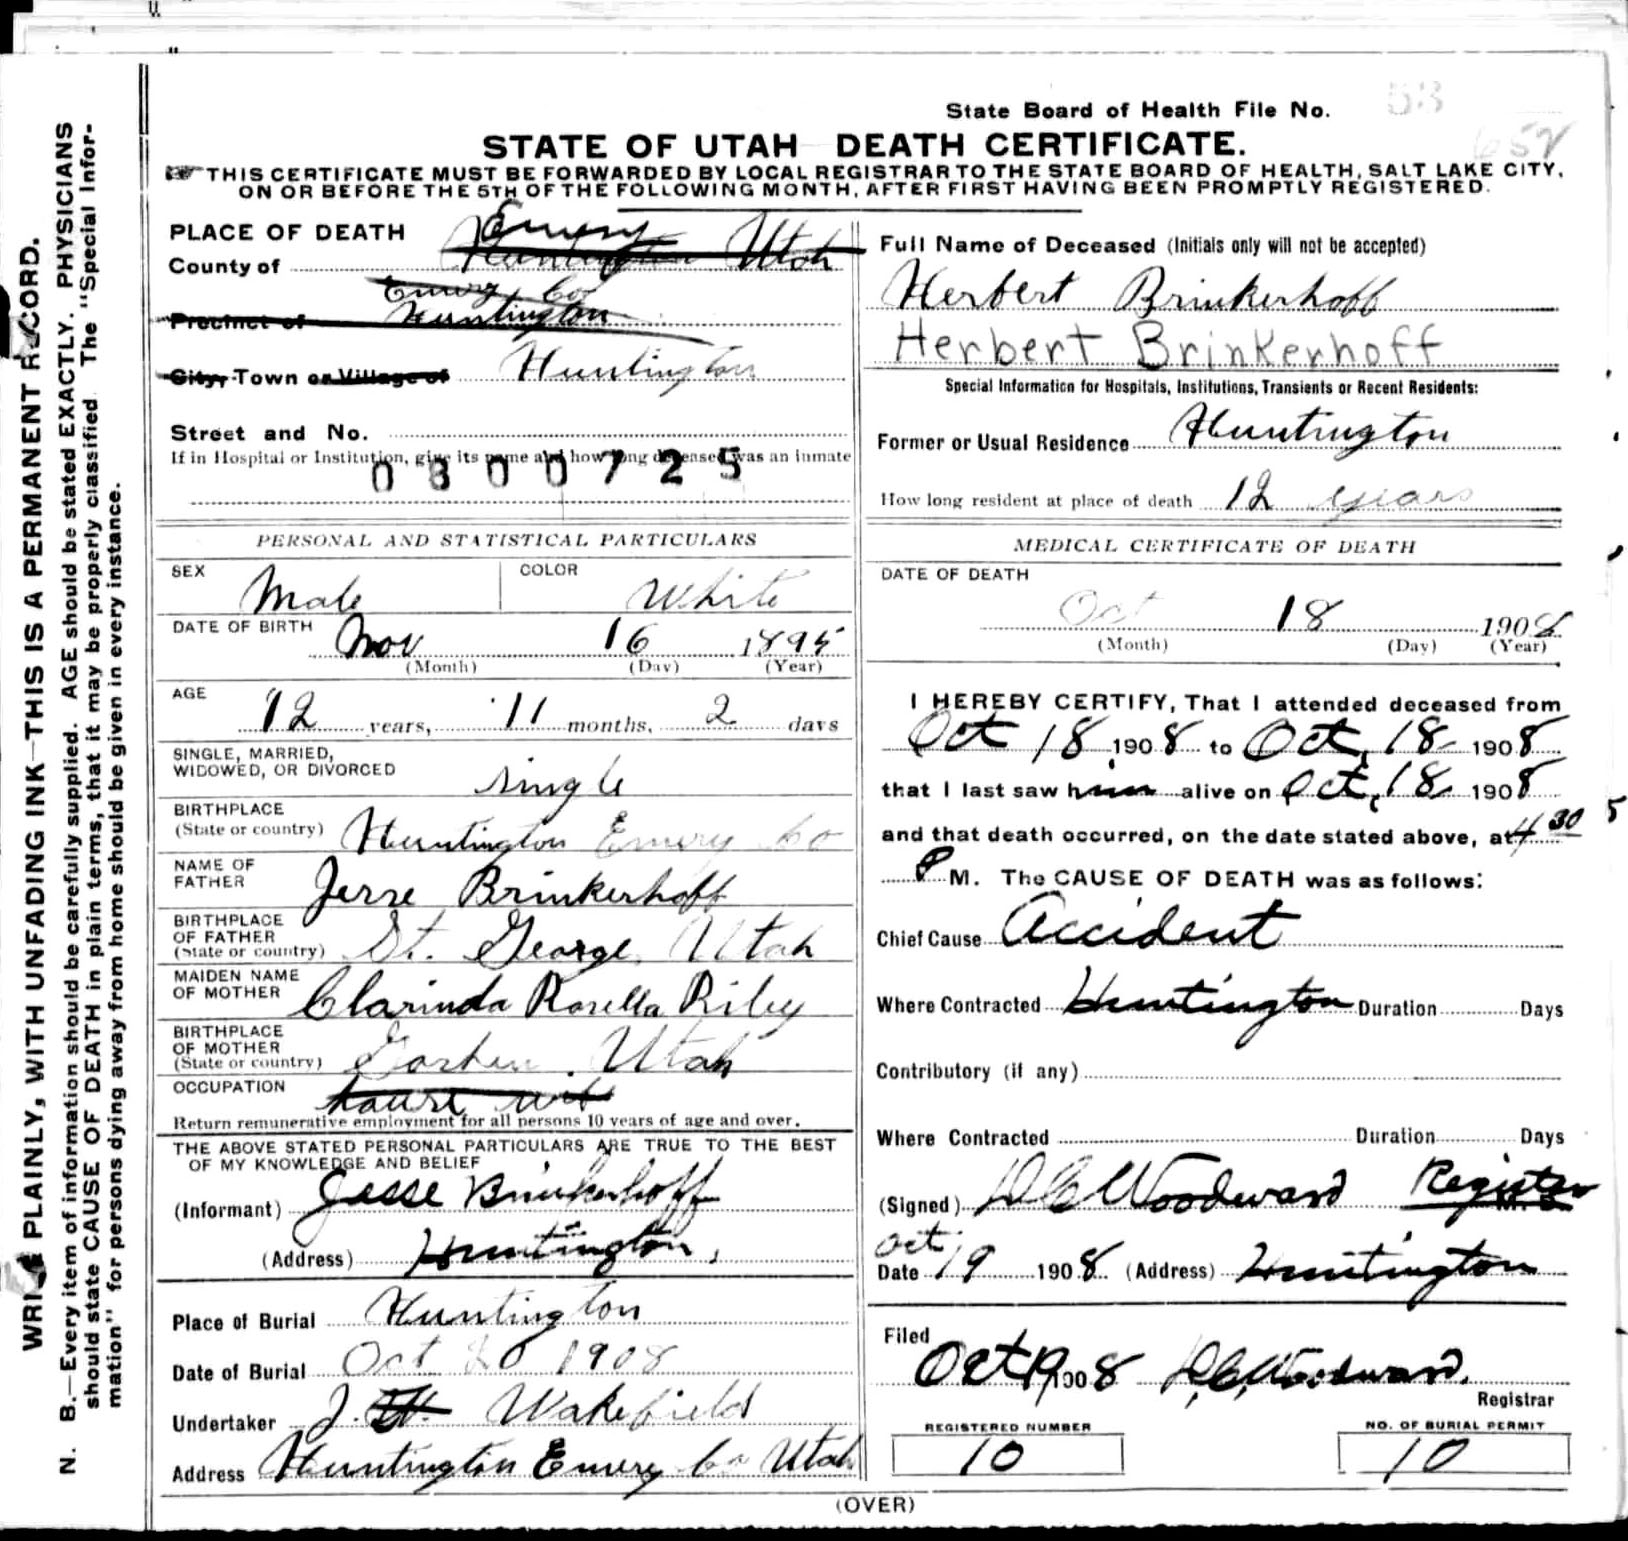 State Board of Health File No. 53
652
STATE OF UTAH DEATH CERTIFICATE.
THIS CERTIFICATE MUST BE FORWARDED BY LOCAL REGISTRAR TO THE STATE BOARD OF HEALTH, SALT LAKE CITY,
ON OR BEFORE THE 5TH OF THE FOLLOWING MONTH, AFTER FIRST HAVING BEEN PROMPTLY REGISTERED.
WRITE PLAINLY, WITH UNFADING INK—THIS IS A PERMANENT RECORD.
N. B.—Every item of information should be carefully supplied. AGE should be stated EXACTLY. PHYSICIANS
should state CAUSE OF DEATH in plain terms, that it may be properly classified. The "Special Infor-
mation" for persons dying away from home should be given in every instance.
PLACE OF DEATH
Emery
County of Huntington Utah
Emery Co
Precinct of Huntington
City, Town or Village of Huntington
Street and No.
If in Hospital or Institution, give its name and how long deceased was an inmate
0800725
PERSONAL AND STATISTICAL PARTICULARS
SEX Male COLOR White
DATE OF BIRTH Nov 16 1895
(Month) (Day) (Year)
AGE 12 years, 11 months, 2 days
SINGLE, MARRIED,
WIDOWED, OR DIVORCED single
BIRTHPLACE
(State or country) Huntington Emery Co
NAME OF
FATHER Jesse Brinkerhoff
BIRTHPLACE
OF FATHER
(State or country) St. George, Utah
MAIDEN NAME
OF MOTHER Clarinda Rosella Riley
BIRTHPLACE
OF MOTHER
(State or country) Goshen, Utah
OCCUPATION
Return remunerative employment for all persons 10 years of age and over.
THE ABOVE STATED PERSONAL PARTICULARS ARE TRUE TO THE BEST
OF MY KNOWLEDGE AND BELIEF
(Informant) Jesse Brinkerhoff
(Address) Huntington,
Place of Burial Huntington
Date of Burial Oct 20 1908
Undertaker J. Wakefield
Address Huntington Emery Co Utah
Full Name of Deceased (Initials only will not be accepted)
Herbert Brinkerhoff
Herbert Brinkerhoff
Special Information for Hospitals, Institutions, Transients or Recent Residents:
Former or Usual Residence Huntington
How long resident at place of death 12 years
MEDICAL CERTIFICATE OF DEATH
DATE OF DEATH
Oct 18 1908
(Month) (Day) (Year)
I HEREBY CERTIFY, That I attended deceased from
Oct 18 1908 to Oct, 18 1908
that I last saw him alive on Oct, 18 1908
and that death occurred, on the date stated above, at 4 30
P M. The CAUSE OF DEATH was as follows:
Chief Cause Accident
Where Contracted Huntington Duration Days
Contributory (if any)
Where Contracted Duration Days
(Signed) D C Woodward Register M. D.
Date Oct 19 1908 (Address) Huntington
Filed
Oct 19 1908 D. C. Woodward.
Registrar
REGISTERED NUMBER
10
NO. OF BURIAL PERMIT
10
(OVER)